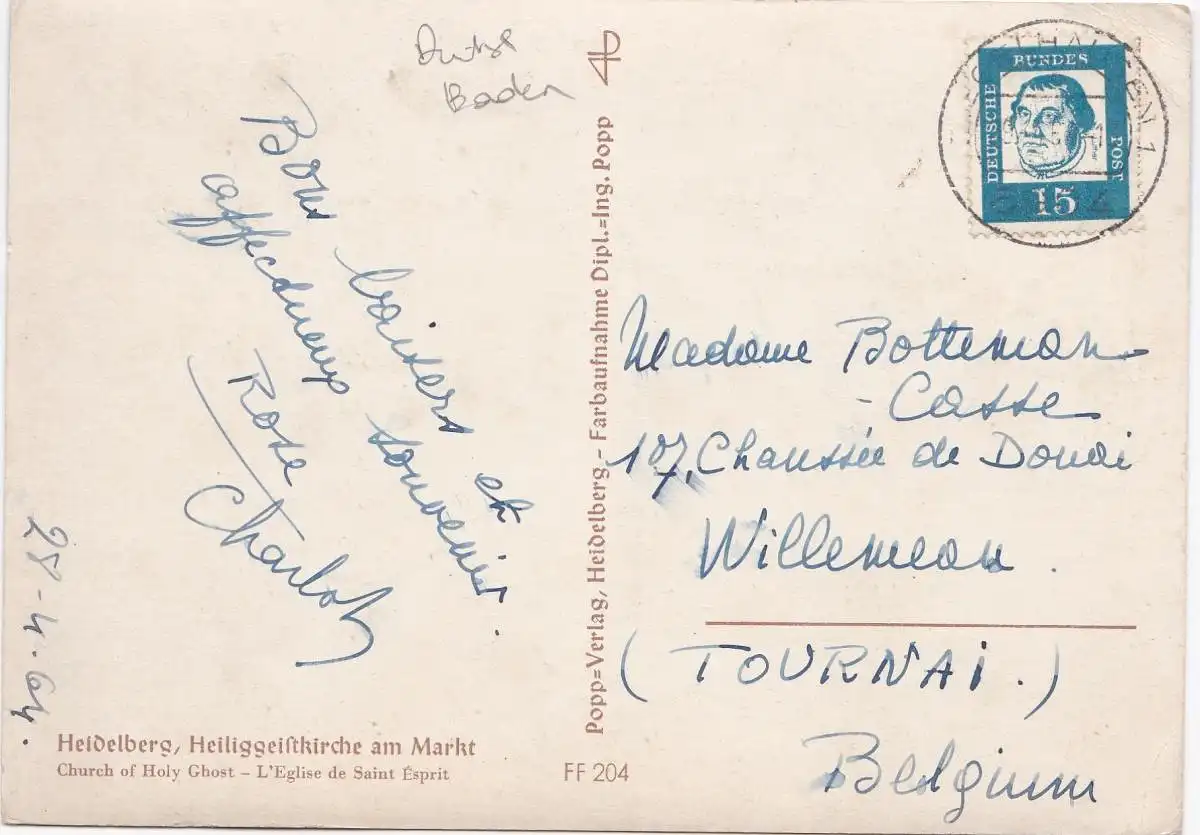 Bons baisers et
affectueux souvenir.
Rose
Charlot
28-4-64.
Heidelberg, Heiliggeiſtkirche am Markt
Church of Holy Ghost – L'Eglise de Saint Ésprit
FF 204
Popp=Verlag, Heidelberg – Farbaufnahme Dipl.=Ing. Popp
Baden
DEUTSCHE
BUNDES
POST
15
Madame Botteman
- Casse
107, Chaussée de Douai
Willemeau.
(TOURNAI.)
Belgium